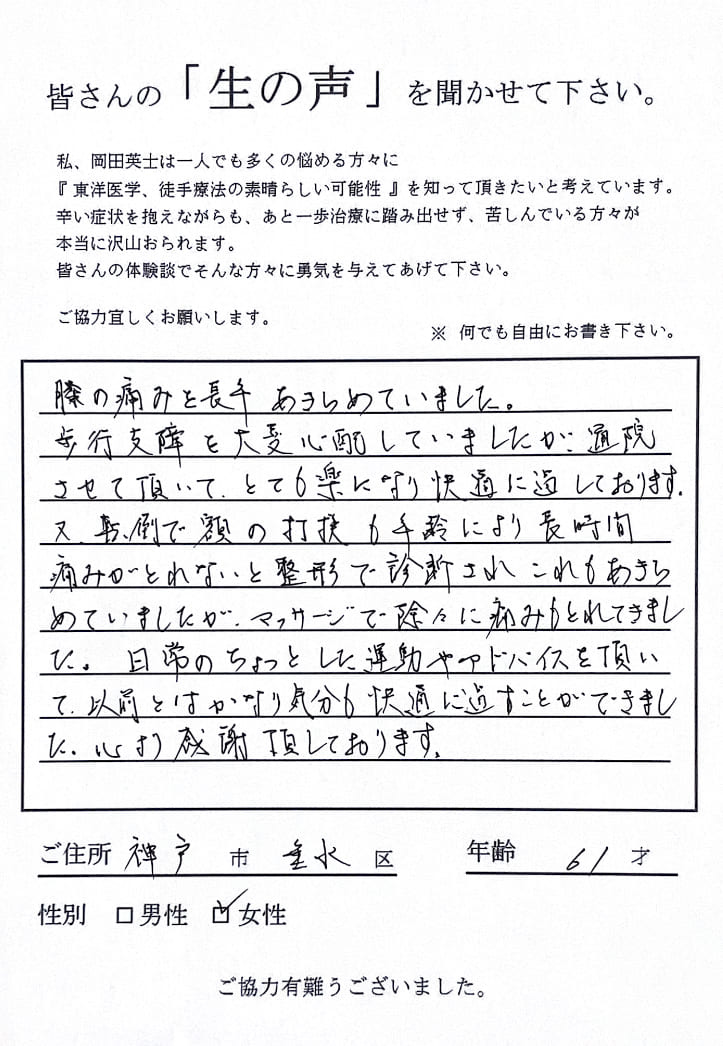 皆さんの「生の声」を聞かせて下さい。
私、岡田英士は一人でも多くの悩める方々に
『 東洋医学、徒手療法の素晴らしい可能性 』を知って頂きたいと考えています。
辛い症状を抱えながらも、あと一歩治療に踏み出せず、苦しんでいる方々が
本当に沢山おられます。
皆さんの体験談でそんな方々に勇気を与えてあげて下さい。
ご協力宜しくお願いします。
※ 何でも自由にお書き下さい。
膝の痛みを長年 あきらめていました。
歩行支障を大変心配していましたが、通院
させて頂いて、とても楽になり快適に過しております。
又、転倒で額の打撲も年齢により長時間
痛みがとれないと整形で診断され これもあきら
めていましたが、マッサージで除々に痛みもとれてきまし
た。日常のちょっとした運動やアドバイスを頂い
て、以前とはかなり気分も快適に過すことができまし
た。心より感謝頂しております。
ご住所 神戸 市 垂水 区 年齢 61 才
性別 □男性 ☑女性
ご協力有難うございました。